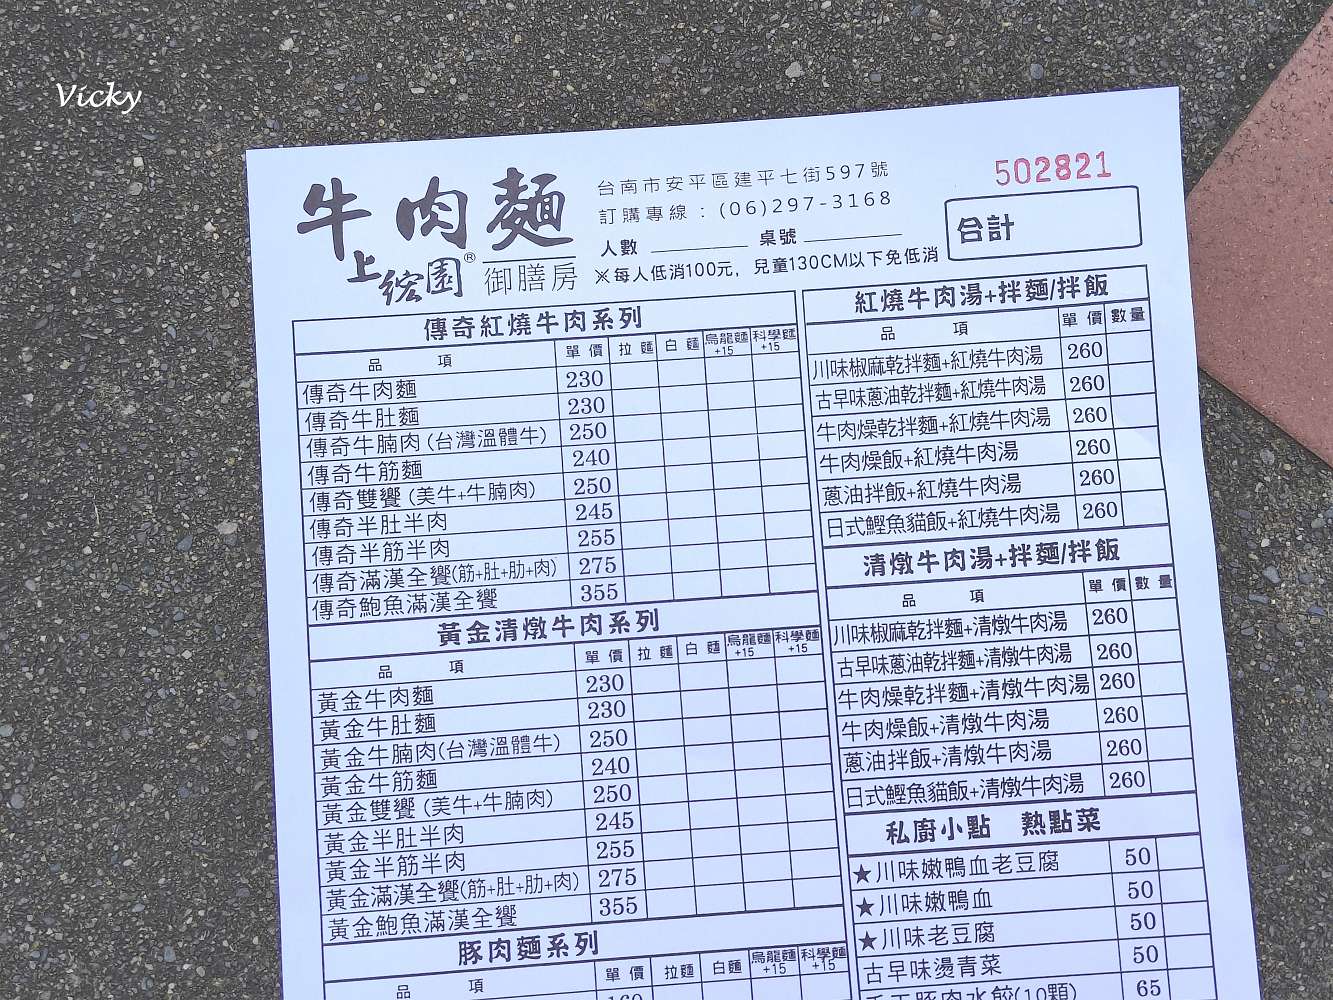 Vicky
牛肉麵
上綜園®
御膳房
台南市安平區建平七街597號
訂購專線：(06)297-3168
人數 桌號
※每人低消100元，兒童130CM以下免低消
502821
合計
傳奇紅燒牛肉系列
品項 單價 拉麵 白麵 烏龍麵+15 科學麵+15
傳奇牛肉麵 230
傳奇牛肚麵 230
傳奇牛腩肉(台灣溫體牛) 250
傳奇牛筋麵 240
傳奇雙饗(美牛+牛腩肉) 250
傳奇半肚半肉 245
傳奇半筋半肉 255
傳奇滿漢全饗(筋+肚+肋+肉) 275
傳奇鮑魚滿漢全饗 355
黃金清燉牛肉系列
品項 單價 拉麵 白麵 烏龍麵+15 科學麵+15
黃金牛肉麵 230
黃金牛肚麵 230
黃金牛腩肉(台灣溫體牛) 250
黃金牛筋麵 240
黃金雙饗(美牛+牛腩肉) 250
黃金半肚半肉 245
黃金半筋半肉 255
黃金滿漢全饗(筋+肚+肋+肉) 275
黃金鮑魚滿漢全饗 355
豚肉麵系列
品項 單價 拉麵 白麵 烏龍麵+15 科學麵+15
紅燒牛肉湯+拌麵/拌飯
品項 單價 數量
川味椒麻乾拌麵+紅燒牛肉湯 260
古早味蔥油乾拌麵+紅燒牛肉湯 260
牛肉燥乾拌麵+紅燒牛肉湯 260
牛肉燥飯+紅燒牛肉湯 260
蔥油拌飯+紅燒牛肉湯 260
日式鰹魚貓飯+紅燒牛肉湯 260
清燉牛肉湯+拌麵/拌飯
品項 單價 數量
川味椒麻乾拌麵+清燉牛肉湯 260
古早味蔥油乾拌麵+清燉牛肉湯 260
牛肉燥乾拌麵+清燉牛肉湯 260
牛肉燥飯+清燉牛肉湯 260
蔥油拌飯+清燉牛肉湯 260
日式鰹魚貓飯+清燉牛肉湯 260
私廚小點 熱點菜
★川味嫩鴨血老豆腐 50
★川味嫩鴨血 50
★川味老豆腐 50
古早味燙青菜 50
手工豚肉水餃(10顆) 65